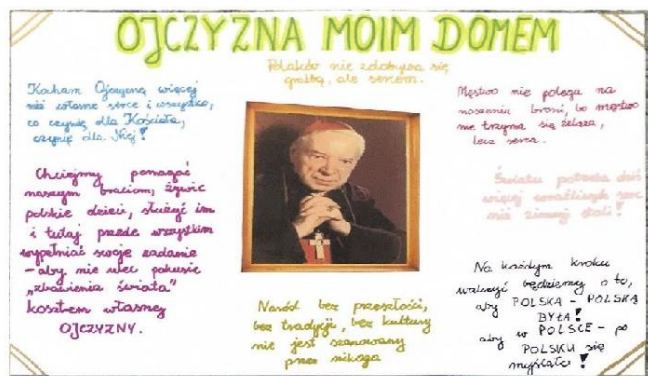 OJCZYZNA MOIM DOMEM
Polaków nie zdobywa się
groźbą, ale sercem.
Kocham Ojczyznę więcej
niż własne serce i wszystko,
co czynię dla Kościoła,
czynię dla Niej!
Chciejmy pomagać
naszym braciom, żywić
polskie dzieci, służyć im
i tutaj przede wszystkim
wypełniać swoje zadanie
- aby nie ulec pokusie
„zbawienia świata"
kosztem własnej
OJCZYZNY.
Naród bez przeszłości,
bez tradycji, bez kultury
nie jest szanowany
przez nikogo
Męstwo nie polega na
noszeniu broni, bo męstwo
nie trzyma się żelaza,
lecz serca.
Światu potrzeba dziś
więcej wrażliwych serc
niż zimnej stali!
Na każdym kroku
walczyć będziemy o to,
aby POLSKA - POLSKĄ
BYŁA!
aby w POLSCE - po
POLSKU się
myślało!